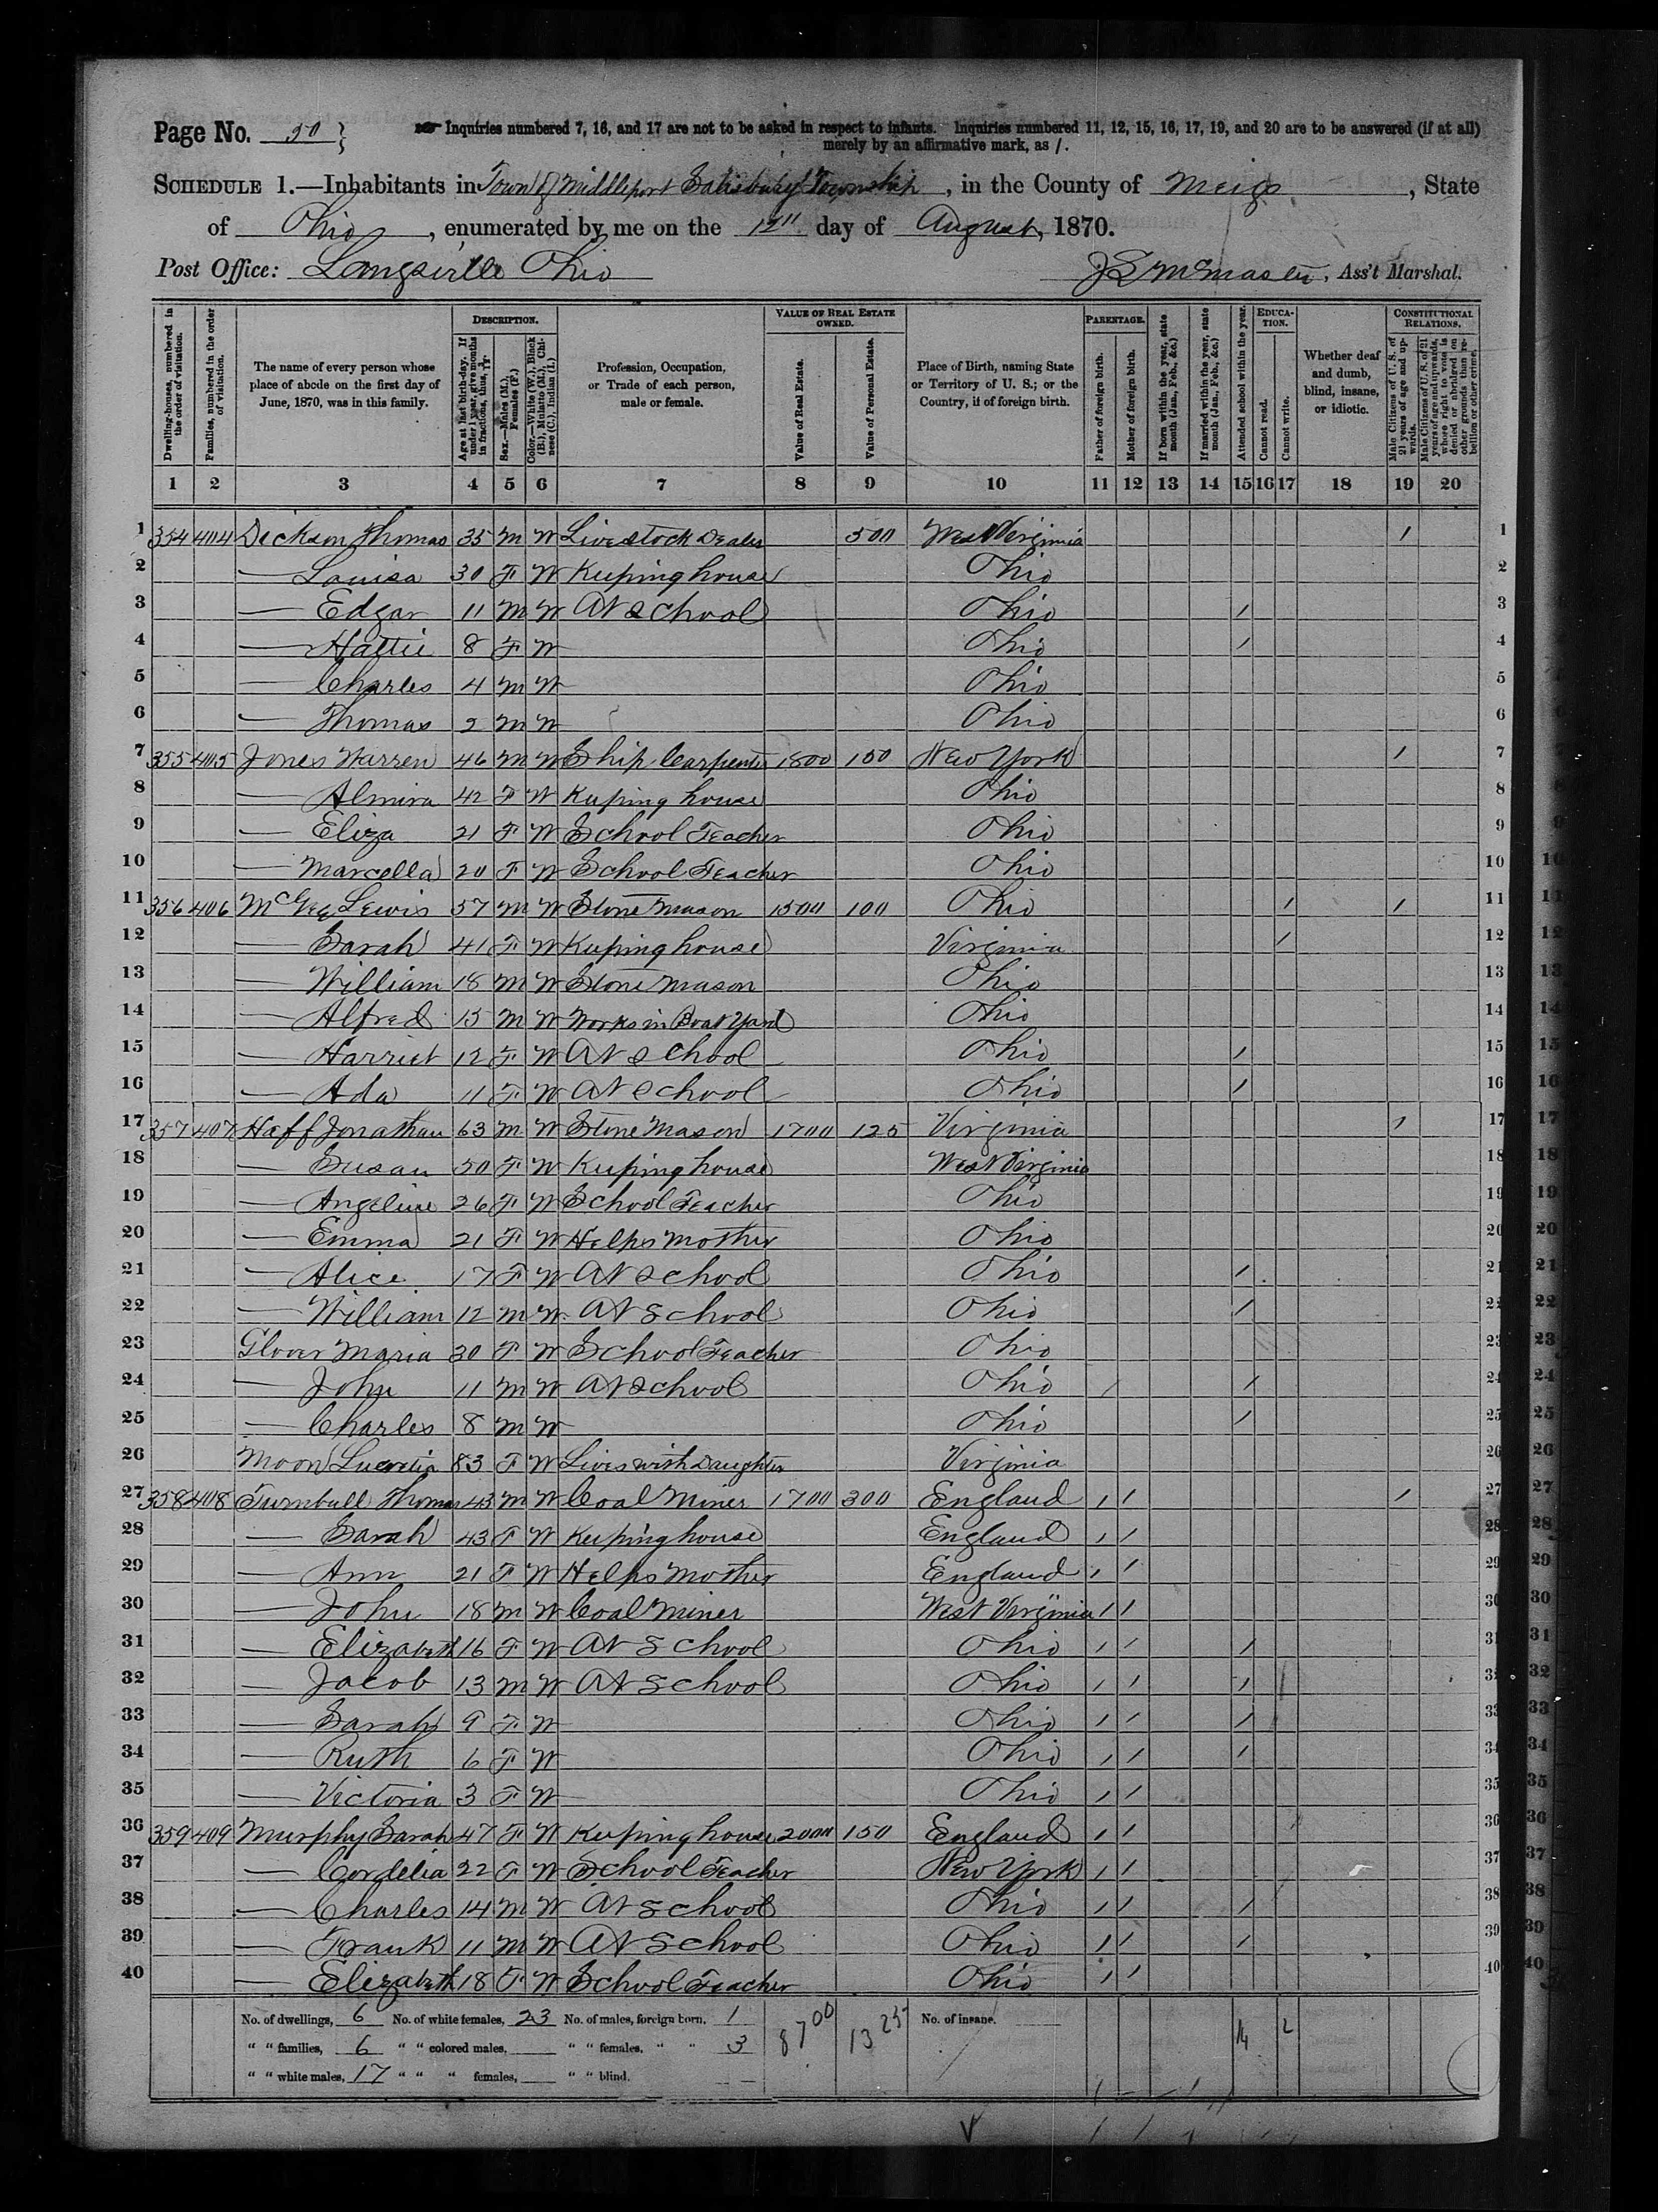 Page No. 50 }
Inquiries numbered 7, 16, and 17 are not to be asked in respect to infants. Inquiries numbered 11, 12, 15, 16, 17, 19, and 20 are to be answered (if at all)
merely by an affirmative mark, as /.
SCHEDULE 1.—Inhabitants in Town of Middleport Salisbury Township, in the County of Meigs, State
of Ohio, enumerated by me on the 12" day of August, 1870.
Post Office: Langsville Ohio
J S McMaster, Ass't Marshal.
Dwelling-houses, numbered in the order of visitation.
Families, numbered in the order of visitation.
The name of every person whose place of abode on the first day of June, 1870, was in this family.
DESCRIPTION.
Age at last birth-day. If under 1 year, give months in fractions, thus,
Sex.—Males (M.), Females (F.)
Color.—White (W.), Black (B.), Mulatto (M.), Chinese (C.), Indian (I.)
Profession, Occupation, or Trade of each person, male or female.
VALUE OF REAL ESTATE OWNED.
Value of Real Estate.
Value of Personal Estate.
Place of Birth, naming State or Territory of U. S.; or the Country, if of foreign birth.
PARENTAGE.
Father of foreign birth.
Mother of foreign birth.
If born within the year, state month (Jan., Feb., &c.)
If married within the year, state month (Jan., Feb., &c.)
Attended school within the year.
EDUCATION.
Cannot read.
Cannot write.
Whether deaf and dumb, blind, insane, or idiotic.
CONSTITUTIONAL RELATIONS.
Male Citizens of U. S. of 21 years of age and upwards.
Male Citizens of U. S. of 21 years of age and upwards, whose right to vote is denied or abridged on other grounds than rebellion or other crime.
1 2 3 4 5 6 7 8 9 10 11 12 13 14 15 16 17 18 19 20
1 354 404 Dickson Thomas 35 M W Live stock Dealer 500 West Virginia / 1
2 — Louisa 30 F W Keeping house Ohio 2
3 — Edgar 11 M W At School Ohio / 3
4 — Hattie 8 F W Ohio / 4
5 — Charles 4 M W Ohio 5
6 — Thomas 2 M W Ohio 6
7 355 405 Jones Warren 46 M W Ship Carpenter 1800 150 New York / 7
8 — Almira 42 F W Keeping house Ohio 8
9 — Eliza 21 F W School Teacher Ohio 9
10 — Marcella 20 F W School Teacher Ohio 10
11 356 406 McGee Lewis 57 M W Stone Mason 1500 100 Ohio / / 11
12 — Sarah 41 F W Keeping house Virginia / 12
13 — William 18 M W Stone Mason Ohio 13
14 — Alfred 15 M W Works in Boat Yard Ohio 14
15 — Harriet 12 F W At School Ohio / 15
16 — Ada 11 F W At School Ohio / 16
17 357 407 Haff Jonathan 63 M W Stone Mason 1700 125 Virginia / 17
18 — Susan 50 F W Keeping house West Virginia 18
19 — Angeline 26 F W School Teacher Ohio 19
20 — Emma 21 F W Helps Mother Ohio 20
21 — Alice 17 F W At School Ohio / 21
22 — William 12 M W At School Ohio / 22
23 Glover Maria 30 F W School Teacher Ohio 23
24 — John 11 M W At School Ohio / / 24
25 — Charles 8 M W Ohio / 25
26 Moon Lucretia 83 F W Lives with Daughter Virginia 26
27 358 408 Turnbull Thomas 43 M W Coal Miner 1700 300 England / / / 27
28 — Sarah 43 F W Keeping house England / / 28
29 — Ann 21 F W Helps Mother England / / 29
30 — John 18 M W Coal Miner West Virginia / / 30
31 — Elizabeth 16 F W At School Ohio / / / 31
32 — Jacob 13 M W At School Ohio / / / 32
33 — Sarah 9 F W Ohio / / / 33
34 — Ruth 6 F W Ohio / / / 34
35 — Victoria 3 F W Ohio / / 35
36 359 409 Murphy Sarah 47 F W Keeping house 2000 150 England / / 36
37 — Cordelia 22 F W School Teacher New York / / 37
38 — Charles 14 M W At School Ohio / / / 38
39 — Frank 11 M W At School Ohio / / / 39
40 — Elizabeth 18 F W School Teacher Ohio / / 40
No. of dwellings, 6 No. of white females, 23 No. of males, foreign born, 1 8700 1325 No. of insane. 14 2
" " families, 6 " " colored males, " " females, " " 3
" " white males, 17 " " " females, " " blind.